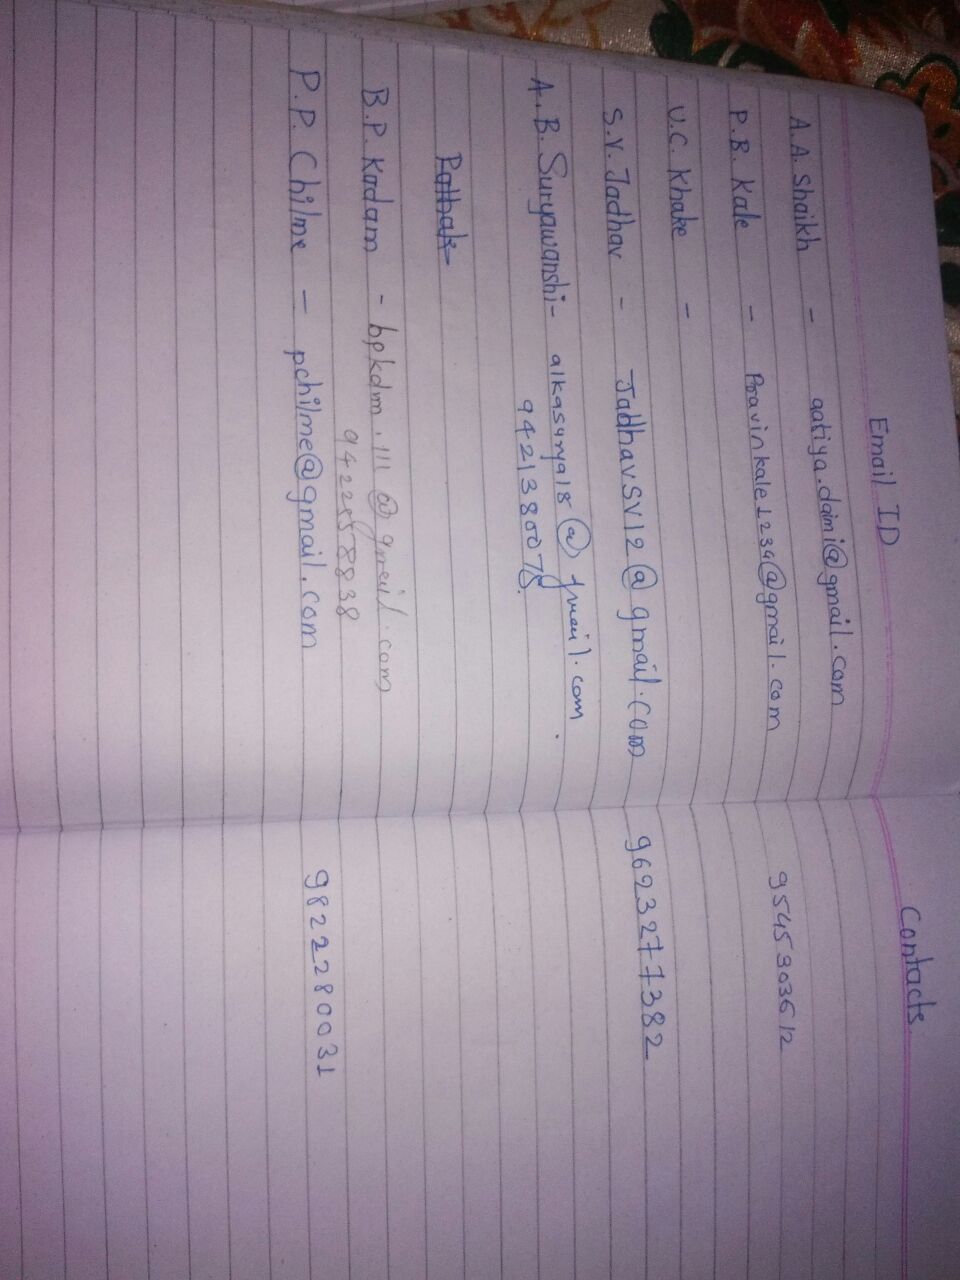 Email ID Contacts
A.A. Shaikh - aatiya.daimi@gmail.com
P.B. Kale - Pravinkale1234@gmail.com 9545303612
U.C. Khake -
S.V. Jadhav - JadhavSV12@gmail.com 9623277382
A.B. Suryawanshi - alkasurya18@gmail.com
9421380078.
Pathak
B.P. Kadam - bpkdm.111@gmail.com
9422558838
P.P. Chilme - pchilme@gmail.com 9822280031